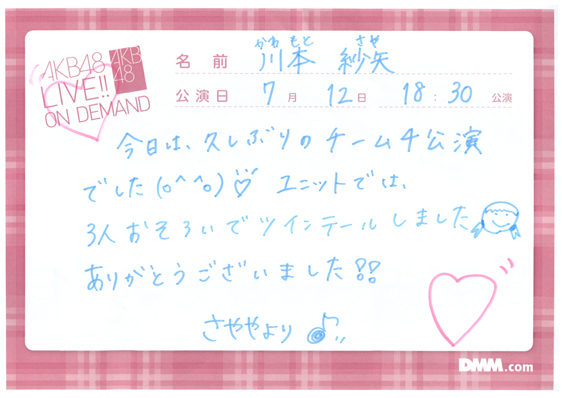 AKB48
LIVE!!
ON DEMAND
AKB
48
かわ もと さや
名前 川本 紗矢
公演日 7月 12日 18:30 公演
今日は、久しぶりのチーム4公演
でした(o^^o)♡ ユニットでは、
3人おそろいでツインテールしました
ありがとうございました!!
さややより ♪
DMM.com